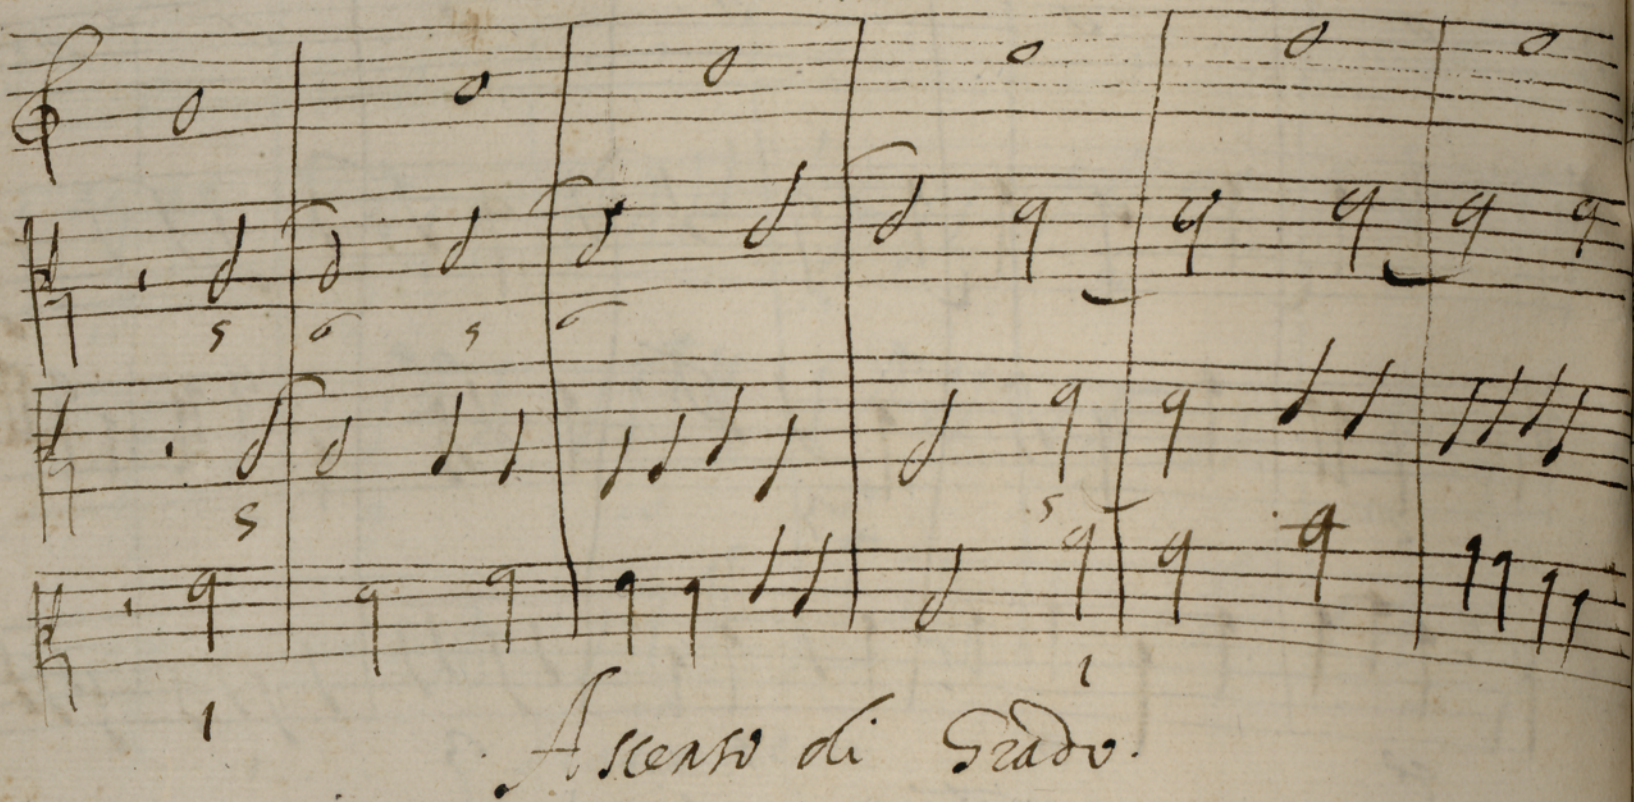 5 6 5 6
5 5
1 1
Ascenso di Grado.